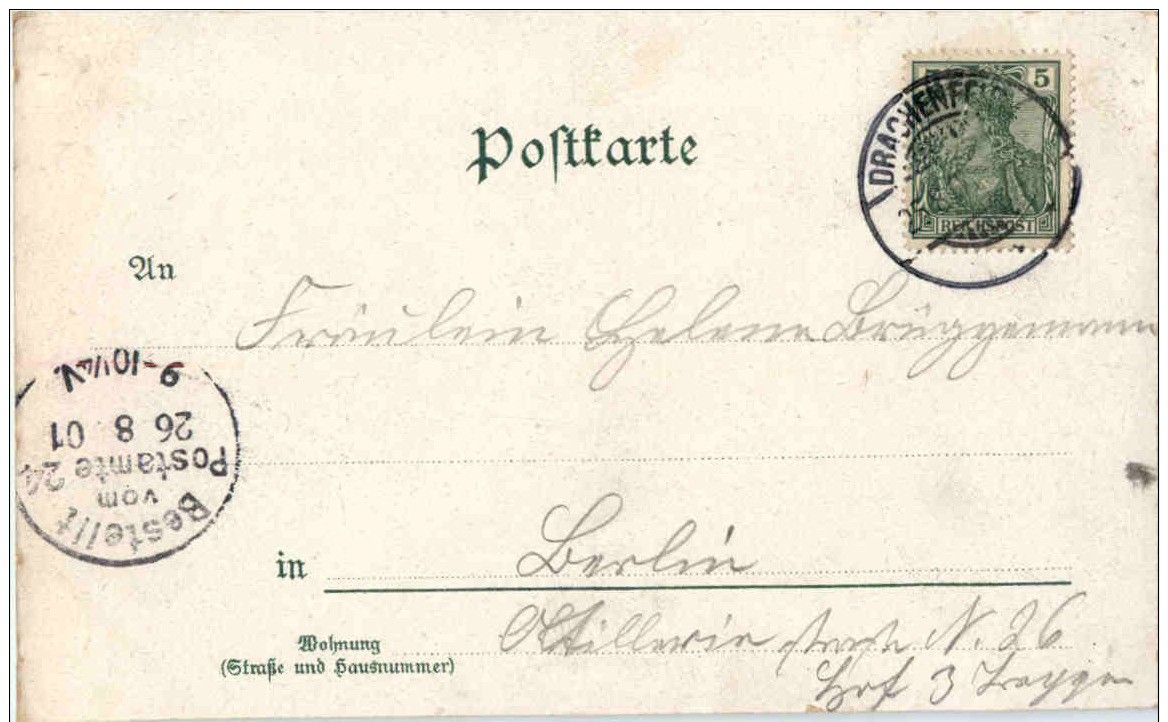 Postkarte
5
DRACHENFELS
REICHSPOST
An
Fräulein Helene Brüggemann
9-10½V.
26 8 01
Bestellt
vom
Postamte 24
in Berlin
Wohnung
(Straße und Hausnummer)
Artillerie strasse N. 26
Hof 3 Treppen